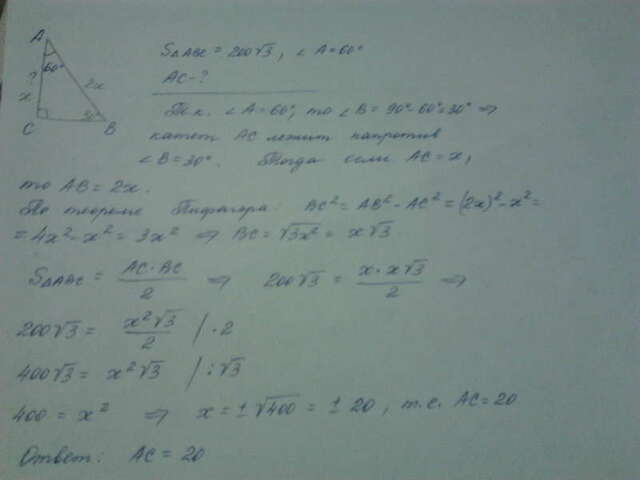 A
60°
?
x
2x
C
30°
B
S△ABC = 200√3, ∠A=60°
AC-?
Т.к. ∠A=60°, то ∠B = 90°-60°=30° ⇒
катет AC лежит напротив
∠B=30°. Тогда если AC=x,
то AB = 2x.
По теореме Пифагора: BC² = AB² - AC² = (2x)² - x² =
= 4x² - x² = 3x² ⇒ BC = √3x² = x√3
S△ABC = AC·BC/2 ⇒ 200√3 = x·x√3/2 ⇒
200√3 = x²√3/2 / ·2
400√3 = x²√3 / :√3
400 = x² ⇒ x = ±√400 = ± 20, т.е. AC=20
Ответ: AC = 20